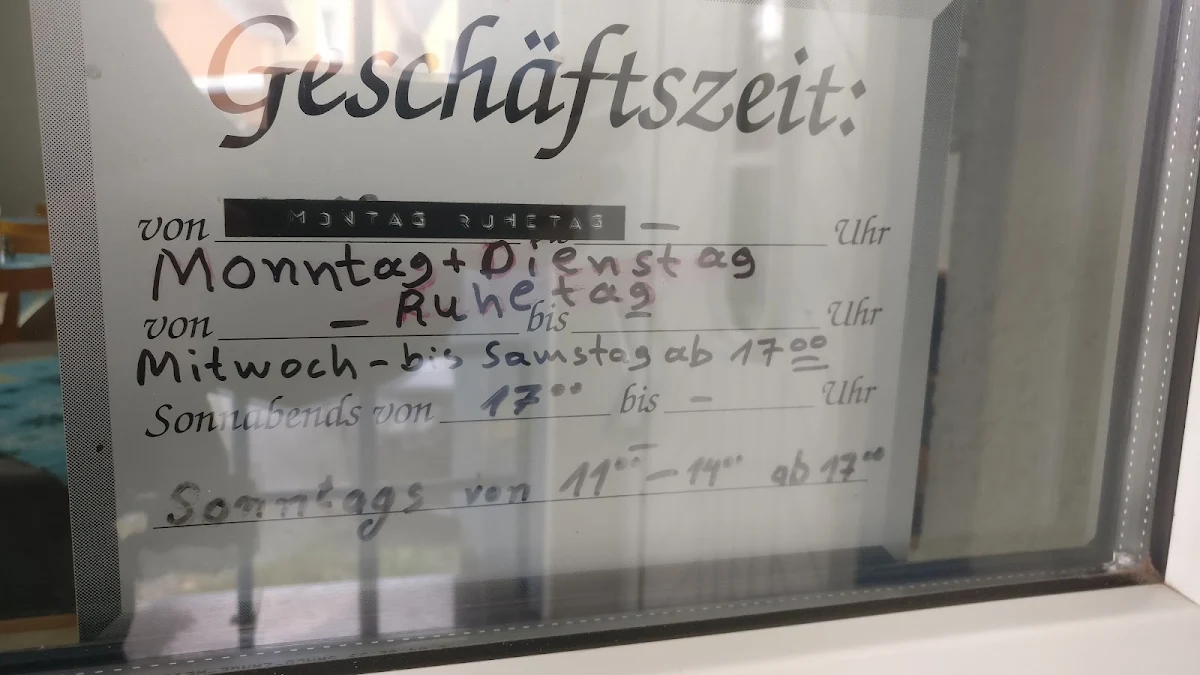 Geschäftszeit:
von MONTAG RUHETAG – Uhr
Monntag + Dienstag
– Ruhetag
von bis Uhr
Mitwoch - bis Samstag ab 17⁰⁰
Sonnabends von 17⁰⁰ bis – Uhr
Sonntags von 11⁰⁰ – 14⁰⁰ ab 17⁰⁰